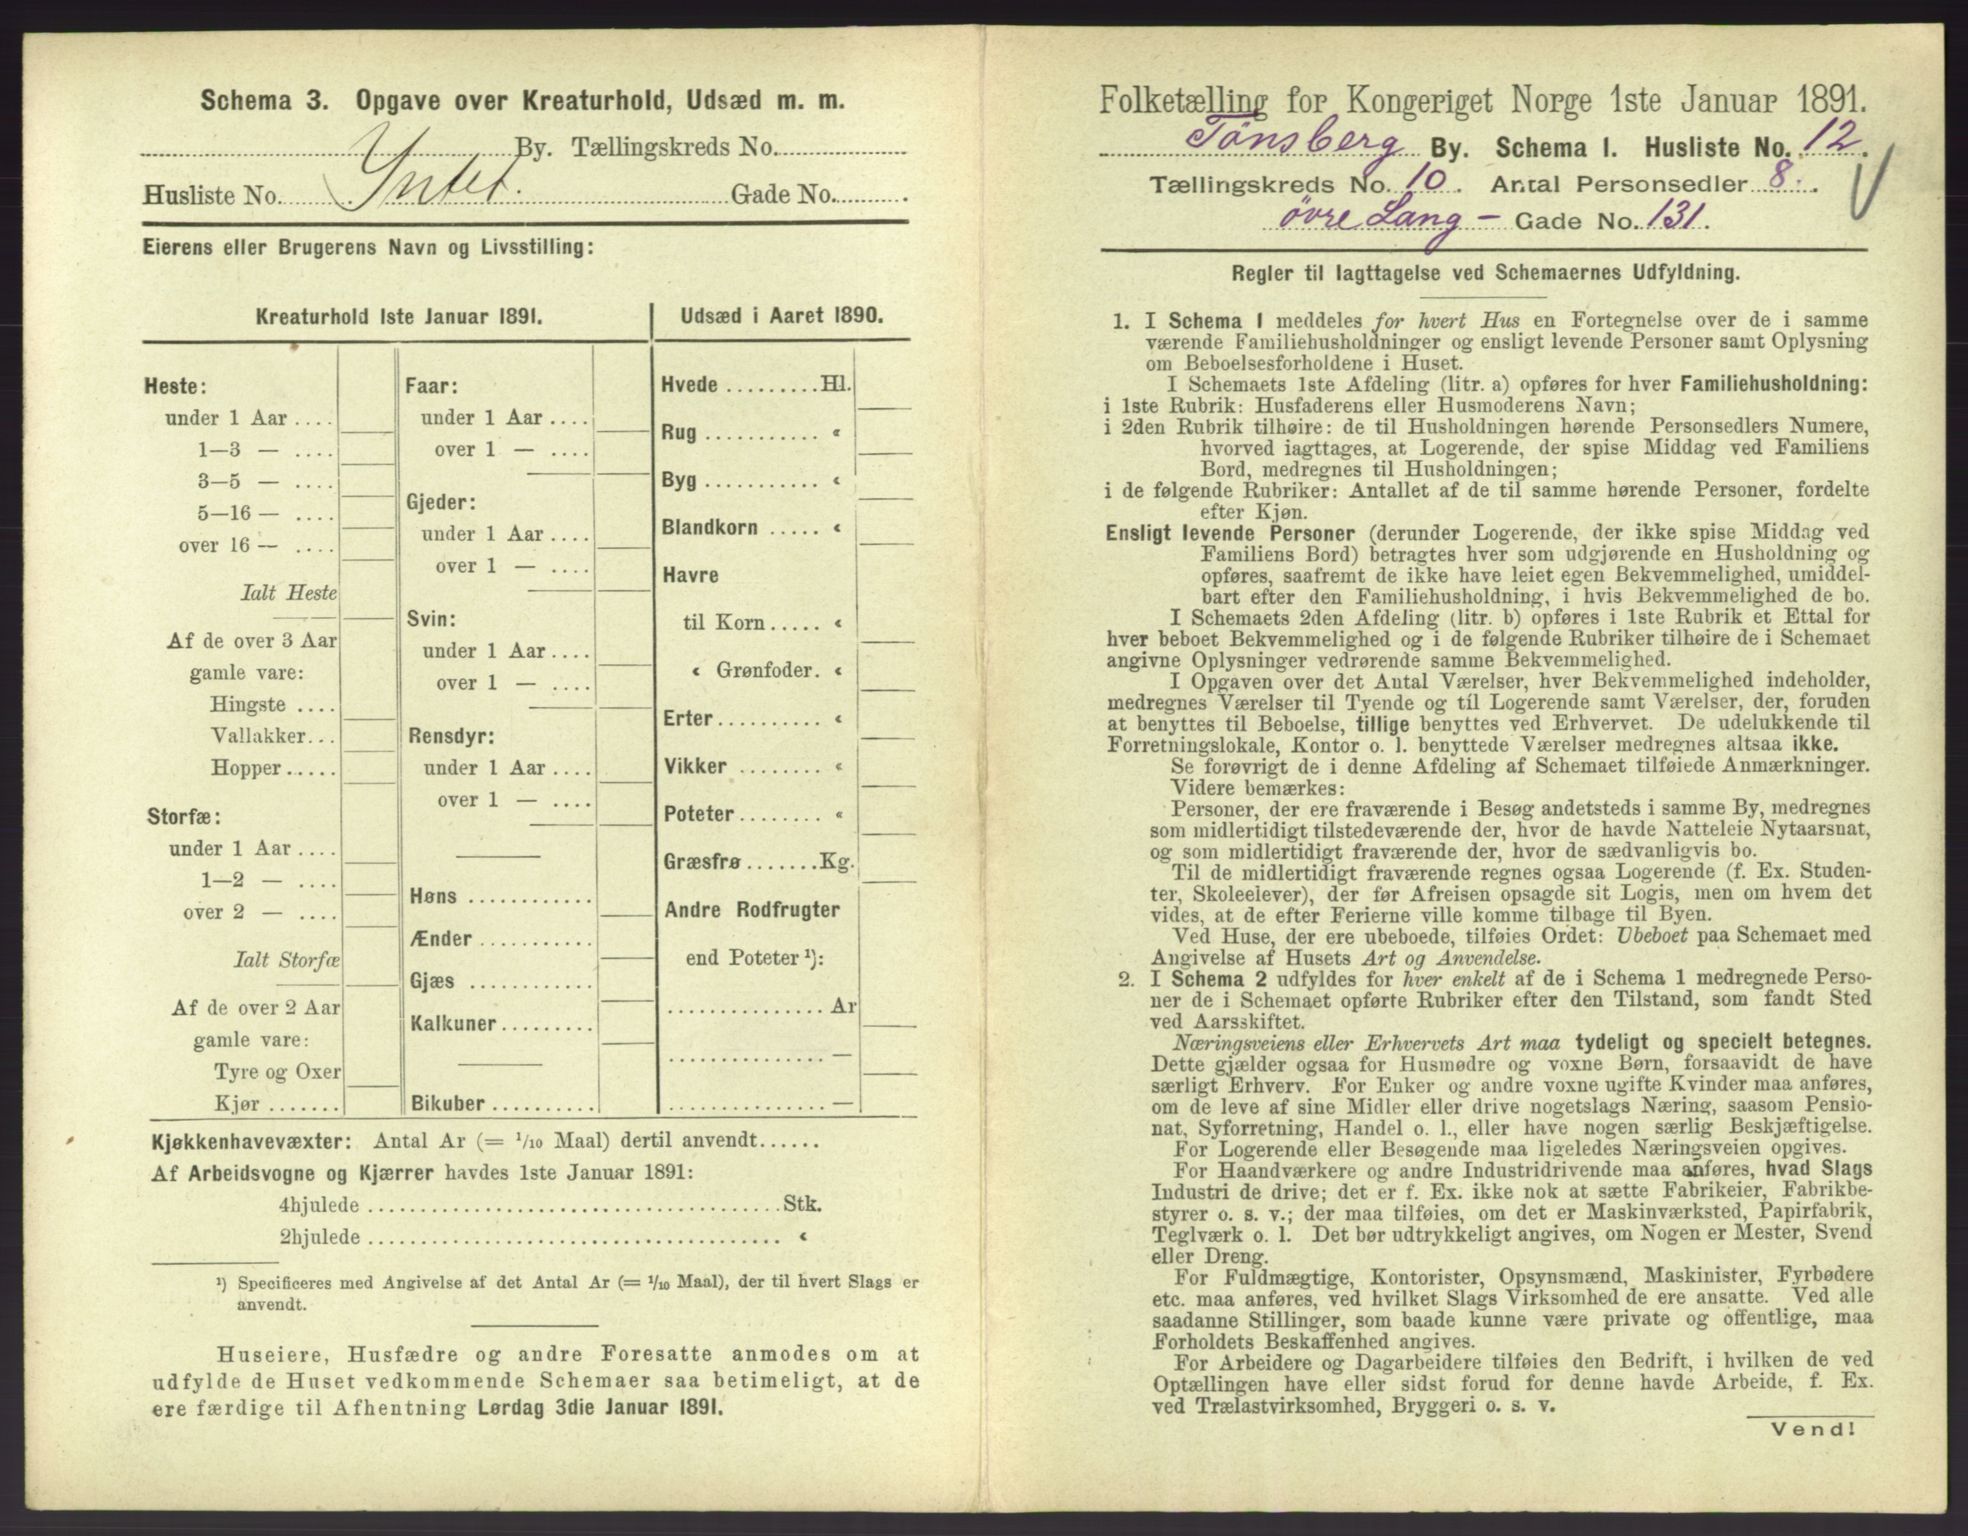 Schema 3. Opgave over Kreaturhold, Udsæd m. m.
By. Tællingskreds No.
Intet.
Husliste No. Gade No.
Eierens eller Brugerens Navn og Livsstilling:
Kreaturhold 1ste Januar 1891.
Heste:
under 1 Aar ....
1—3 — ....
3—5 — ....
5—16 — ....
over 16 — ....
Ialt Heste
Af de over 3 Aar
gamle vare:
Hingste ....
Vallakker...
Hopper.....
Storfæ:
under 1 Aar ....
1—2 — ....
over 2 — ....
Ialt Storfæ
Af de over 2 Aar
gamle vare:
Tyre og Oxer
Kjør .......
Faar:
under 1 Aar ....
over 1 — ....
Gjeder:
under 1 Aar ....
over 1 — ....
Svin:
under 1 Aar ....
over 1 — ....
Rensdyr:
under 1 Aar ....
over 1 — ....
Høns ............
Ænder...........
Gjæs ............
Kalkuner.........
Bikuber ..........
Udsæd i Aaret 1890.
Hvede .........Hl.
Rug ........... «
Byg ........... «
Blandkorn ..... «
Havre
til Korn..... «
« Grønfoder. «
Erter.......... «
Vikker ........ «
Poteter........ «
Græsfrø .......Kg.
Andre Rodfrugter
end Poteter ¹):
............... Ar
............... —
............... —
Kjøkkenhavevæxter: Antal Ar (= 1/10 Maal) dertil anvendt......
Af Arbeidsvogne og Kjærrer havdes 1ste Januar 1891:
4hjulede ........................................Stk.
2hjulede ........................................ «
¹) Specificeres med Angivelse af det Antal Ar (= 1/10 Maal), der til hvert Slags er
anvendt.
Huseiere, Husfædre og andre Foresatte anmodes om at
udfylde de Huset vedkommende Schemaer saa betimeligt, at de
ere færdige til Afhentning Lørdag 3die Januar 1891.
Folketælling for Kongeriget Norge 1ste Januar 1891.
Tønsberg By. Schema 1. Husliste No. 12.
Tællingskreds No. 10. Antal Personsedler 8.
øvre Lang- Gade No. 131.
Regler til Iagttagelse ved Schemaernes Udfyldning.
1. I Schema 1 meddeles for hvert Hus en Fortegnelse over de i samme
værende Familiehusholdninger og ensligt levende Personer samt Oplysning
om Beboelsesforholdene i Huset.
I Schemaets 1ste Afdeling (litr. a) opføres for hver Familiehusholdning:
i 1ste Rubrik: Husfaderens eller Husmoderens Navn;
i 2den Rubrik tilhøire: de til Husholdningen hørende Personsedlers Numere,
hvorved iagttages, at Logerende, der spise Middag ved Familiens
Bord, medregnes til Husholdningen;
i de følgende Rubriker: Antallet af de til samme hørende Personer, fordelte
efter Kjøn.
Ensligt levende Personer (derunder Logerende, der ikke spise Middag ved
Familiens Bord) betragtes hver som udgjørende en Husholdning og
opføres, saafremt de ikke have leiet egen Bekvemmelighed, umiddel-
bart efter den Familiehusholdning, i hvis Bekvemmelighed de bo.
I Schemaets 2den Afdeling (litr. b) opføres i 1ste Rubrik et Ettal for
hver beboet Bekvemmelighed og i de følgende Rubriker tilhøire de i Schemaet
angivne Oplysninger vedrørende samme Bekvemmelighed.
I Opgaven over det Antal Værelser, hver Bekvemmelighed indeholder,
medregnes Værelser til Tyende og til Logerende samt Værelser, der, foruden
at benyttes til Beboelse, tillige benyttes ved Erhvervet. De udelukkende til
Forretningslokale, Kontor o. l. benyttede Værelser medregnes altsaa ikke.
Se forøvrigt de i denne Afdeling af Schemaet tilføiede Anmærkninger.
Videre bemærkes:
Personer, der ere fraværende i Besøg andetsteds i samme By, medregnes
som midlertidigt tilstedeværende der, hvor de havde Natteleie Nytaarsnat,
og som midlertidigt fraværende der, hvor de sædvanligvis bo.
Til de midlertidigt fraværende regnes ogsaa Logerende (f. Ex. Studen-
ter, Skoleelever), der før Afreisen opsagde sit Logis, men om hvem det
vides, at de efter Ferierne ville komme tilbage til Byen.
Ved Huse, der ere ubeboede, tilføies Ordet: Ubeboet paa Schemaet med
Angivelse af Husets Art og Anvendelse.
2. I Schema 2 udfyldes for hver enkelt af de i Schema 1 medregnede Perso-
ner de i Schemaet opførte Rubriker efter den Tilstand, som fandt Sted
ved Aarsskiftet.
Næringsveiens eller Erhvervets Art maa tydeligt og specielt betegnes.
Dette gjælder ogsaa for Husmødre og voxne Børn, forsaavidt de have
særligt Erhverv. For Enker og andre voxne ugifte Kvinder maa anføres,
om de leve af sine Midler eller drive nogetslags Næring, saasom Pensio-
nat, Syforretning, Handel o. l., eller have nogen særlig Beskjæftigelse.
For Logerende eller Besøgende maa ligeledes Næringsveien opgives.
For Haandværkere og andre Industridrivende maa anføres, hvad Slags
Industri de drive; det er f. Ex. ikke nok at sætte Fabrikeier, Fabrikbe-
styrer o. s. v.; der maa tilføies, om det er Maskinværksted, Papirfabrik,
Teglværk o. l. Det bør udtrykkeligt angives, om Nogen er Mester, Svend
eller Dreng.
For Fuldmægtige, Kontorister, Opsynsmænd, Maskinister, Fyrbødere
etc. maa anføres, ved hvilket Slags Virksomhed de ere ansatte. Ved alle
saadanne Stillinger, som baade kunne være private og offentlige, maa
Forholdets Beskaffenhed angives.
For Arbeidere og Dagarbeidere tilføies den Bedrift, i hvilken de ved
Optællingen have eller sidst forud for denne havde Arbeide, f. Ex.
ved Trælastvirksomhed, Bryggeri o. s. v.
Vend!